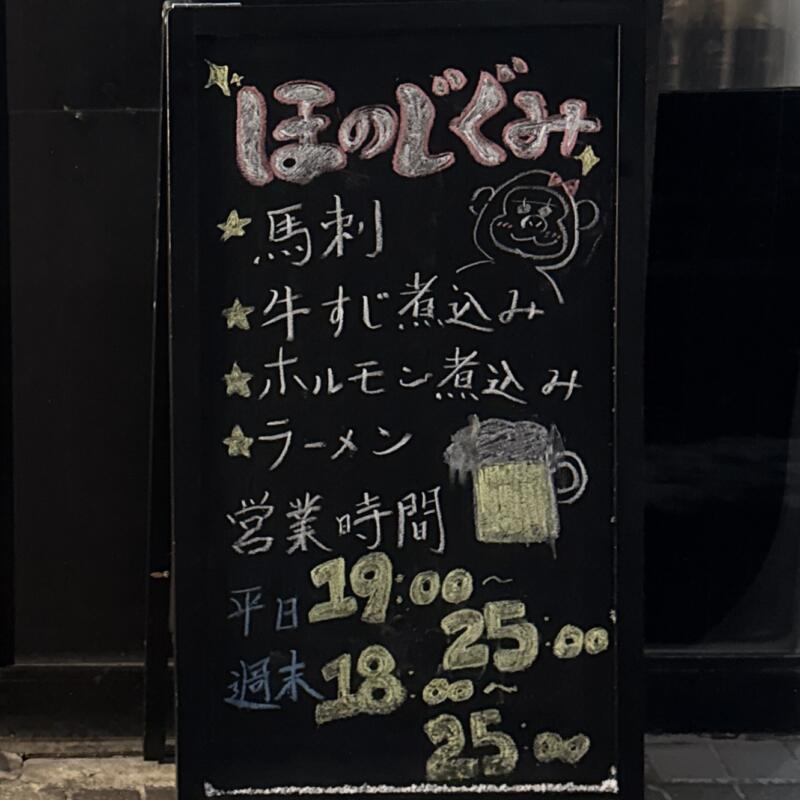 ほのじぐみ
★馬刺
★牛すじ煮込み
★ホルモン煮込み
★ラーメン
営業時間
平日19:00~
25:00
週末18:00~
25:00